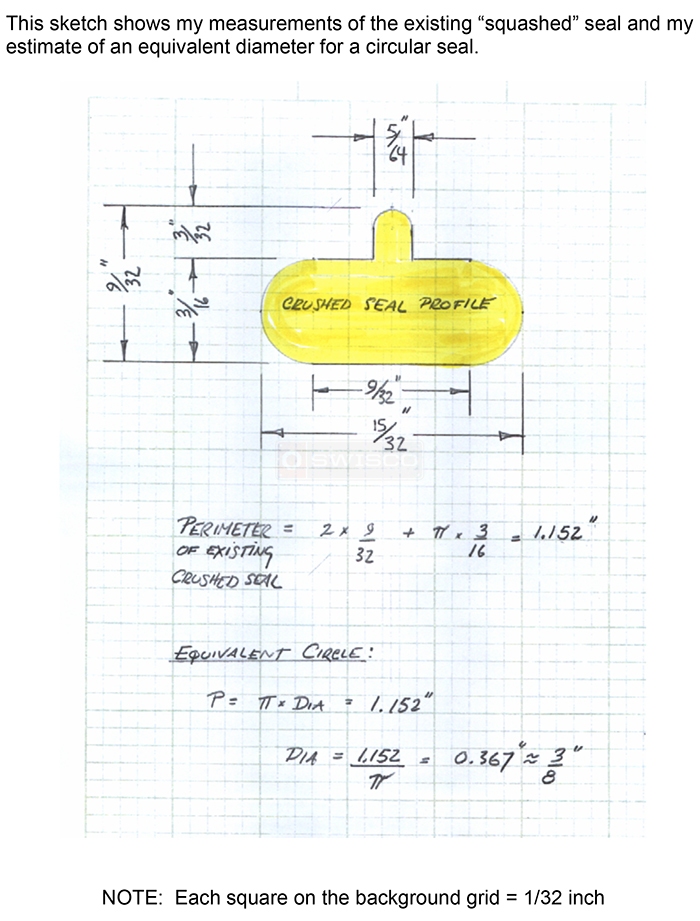 This sketch shows my measurements of the existing “squashed” seal and my
estimate of an equivalent diameter for a circular seal.
5/64"
3/32"
9/32"
3/16"
CRUSHED SEAL PROFILE
9/32"
15/32"
SWISCO
PERIMETER = 2 x 9/32 + π x 3/16 = 1.152"
OF EXISTING
CRUSHED SEAL
EQUIVALENT CIRCLE:
P = π x DIA = 1.152"
DIA = 1.152/π = 0.367" ≈ 3/8"
NOTE: Each square on the background grid = 1/32 inch